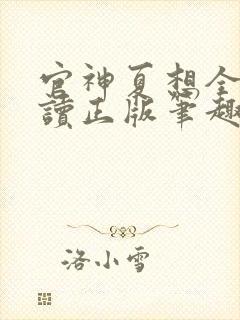 官神夏想全
讀正版筆趣
洛小雪